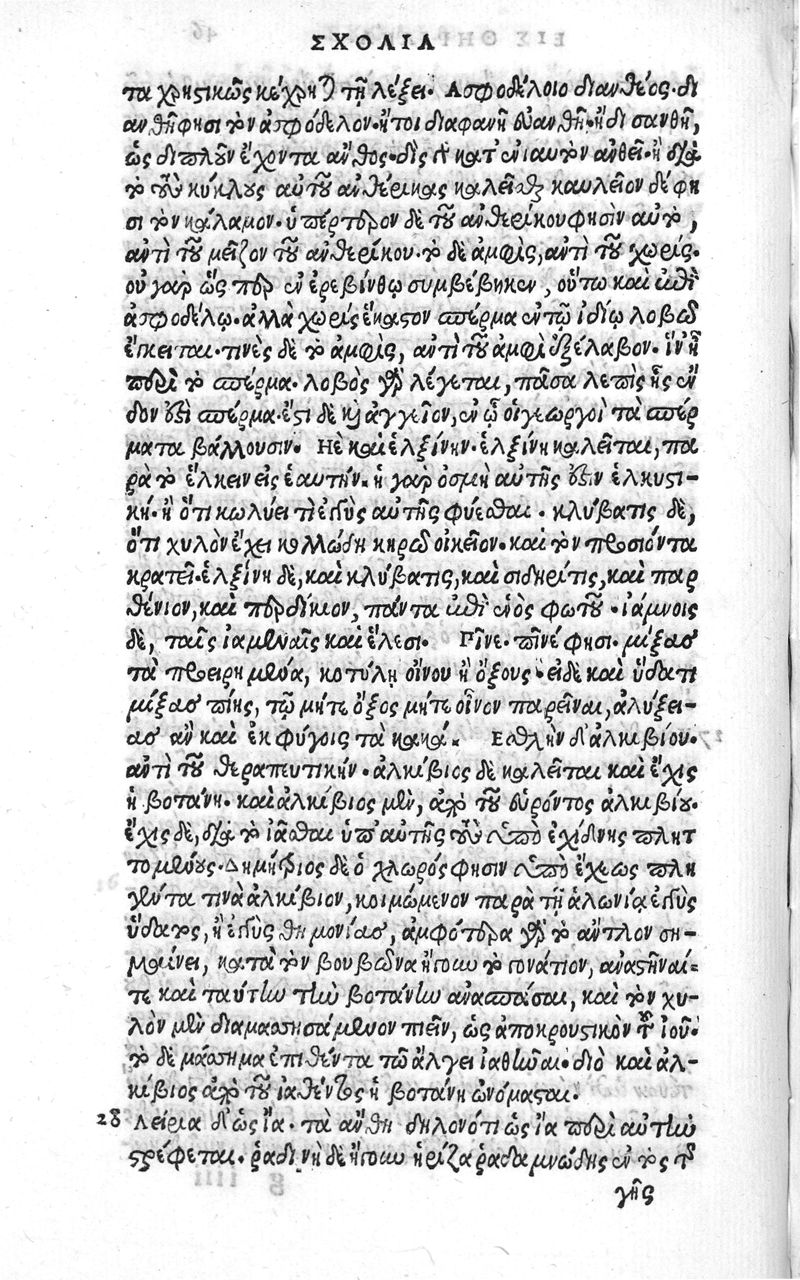 ΣΧΟΛΙΑ
ταχρηστικῶς κέχρηται τῇ λέξει· Ἀσφοδέλοιο διανθέος· δι
ανθῆ φησὶ τὸν ἀσφόδελον· ἤτοι διαφανῆ εὐανθῆ· ἢ δισανθῆ,
ὡς διπλοῦν ἔχοντα ἄνθος· δὶς γὰρ κατ' ἐνιαυτὸν ἀνθεῖ· ἢ διὰ
τὸ τοὺς κύκλους αὐτοῦ ἀνθέρικας καλεῖσθαι καυλεῖον δέ φη
σι τὸν κάλαμον· ὑπέρτερον δὲ τοῦ ἀνθερίκου φησὶν αὐτὸ,
αὐτὶ τοῦ μεῖζον τοῦ ἀνθερίκου· τὸ δὲ ἀμφὶς, αὐτὶ τοῦ χωρίς·
οὐ γὰρ ὥσπερ ἐν ἐρεβίνθῳ συμβέβηκεν, οὕτω καὶ ἐπὶ
ἀσφοδέλῳ· ἀλλὰ χωρὶς ἕκαστον σπέρμα ἐν τῷ ἰδίῳ λοβῷ
ἔγκειται· τινὲς δὲ τὸ ἀμφὶς, αὐτὶ τοῦ ἀμφὶ ἐξέλαβον· ἵν' ᾖ
περὶ τὸ σπέρμα· λοβὸς γὰρ λέγεται, πᾶσα λεπὶς ἧς ἔν
δον ἐστὶ σπέρμα· ἔστι δὲ καὶ ἀγγεῖον, ἐν ᾧ οἱ γεωργοὶ τὰ σπέρ
ματα βάλλουσιν. Ηὲ καὶ ἑλξίνην· ἑλξίνη καλεῖται, πα
ρὰ τὸ ἕλκειν εἰς ἑαυτήν. ἡ γὰρ ὀσμὴ αὐτῆς ἐστιν ἑλκυστι-
κή· ἢ ὅτι κωλύει τι ἐγγὺς αὐτῆς φύεσθαι· κλύβατις δὲ,
ὅτι χυλὸν ἔχει κολλώδη κηρῷ οἰκεῖον· καὶ τὸν προσιόντα
κρατεῖ· ἑλξίνη δὲ, καὶ κλύβατις, καὶ σιδηρίτις, καὶ παρ
θένιον, καὶ περδίκιον, πάντα ἐπὶ ἑνὸς φυτοῦ· ἰάμνοις
δὲ, ταῖς ἰαμεναῖς καὶ ἕλεσι. Πῖνε· πῖνέ φησι· μίξας
τὰ προειρημένα, κοτύλῃ οἴνου ἢ ὄξους· εἰ δὲ καὶ ὕδατι
μίξας πίῃς, τῷ μήτε ὄξος μήτε οἶνον παρεῖναι, ἀλύξει-
ας ἂν καὶ ἐκφύγοις τὰ κακά. Ἐσθλὴν δ' ἀλκιβίου·
αὐτὶ τοῦ θεραπευτικήν· ἀλκίβιος δὲ καλεῖται καὶ ἔχις
ἡ βοτάνη· καὶ ἀλκίβιος μὲν, ἀπὸ τοῦ εὑρόντος ἀλκιβίου·
ἔχις δὲ, διὰ τὸ ἰᾶσθαι ὑπ' αὐτῆς τοὺς ὑπὸ ἐχίδνης πλητ
τομένους· Δημήτριος δὲ ὁ χλωρός φησιν ὑπὸ ἔχεως πλη
γέντα τινὰ ἀλκίβιον, κοιμώμενον παρὰ τῇ ἁλωνίᾳ ἐγγὺς
ὕδατος, ἢ ἐγγὺς θημονίας, ἀμφότερα γὰρ τὸ ἄντλον ση-
μαίνει, κατὰ τὸν βουβῶνα ἤτοι τὸ γονάτιον, ἀναστῆναί-
τε καὶ ταύτην τὴν βοτάνην ἀνασπάσαι, καὶ τὸν χυ-
λὸν μὲν διαμασησάμενον πιεῖν, ὡς ἀποκρουστικὸν τοῦ ἰοῦ·
τὸ δὲ μάσημα ἐπιθέντα τῷ ἄλγει ἰαθῆναι· διὸ καὶ ἀλ-
κίβιος ἀπὸ τοῦ ἰαθέντος ἡ βοτάνη ὠνόμασται.
28 Λείρια δ' ὡς ἴα· τὰ ἄνθη δηλονότι ὡς ἴα περὶ αὐτὴν
στρέφεται· ῥαδινὴ δὲ ἤτοι ἡ ῥίζα ῥαδαμνώδης ἐντὸς τῆς
γῆς